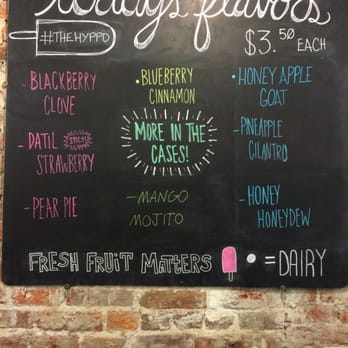 Today's flavors
#THEHYPPO
$3.50 EACH
- BLACKBERRY
CLOVE
- DATIL SPICY!
STRAWBERRY
- PEAR PIE
• BLUEBERRY
CINNAMON
MORE IN THE
CASES!
- MANGO
MOJITO
• HONEY APPLE
GOAT
- PINEAPPLE
CILANTRO
- HONEY
HONEYDEW
FRESH FRUIT MATTERS
• = DAIRY